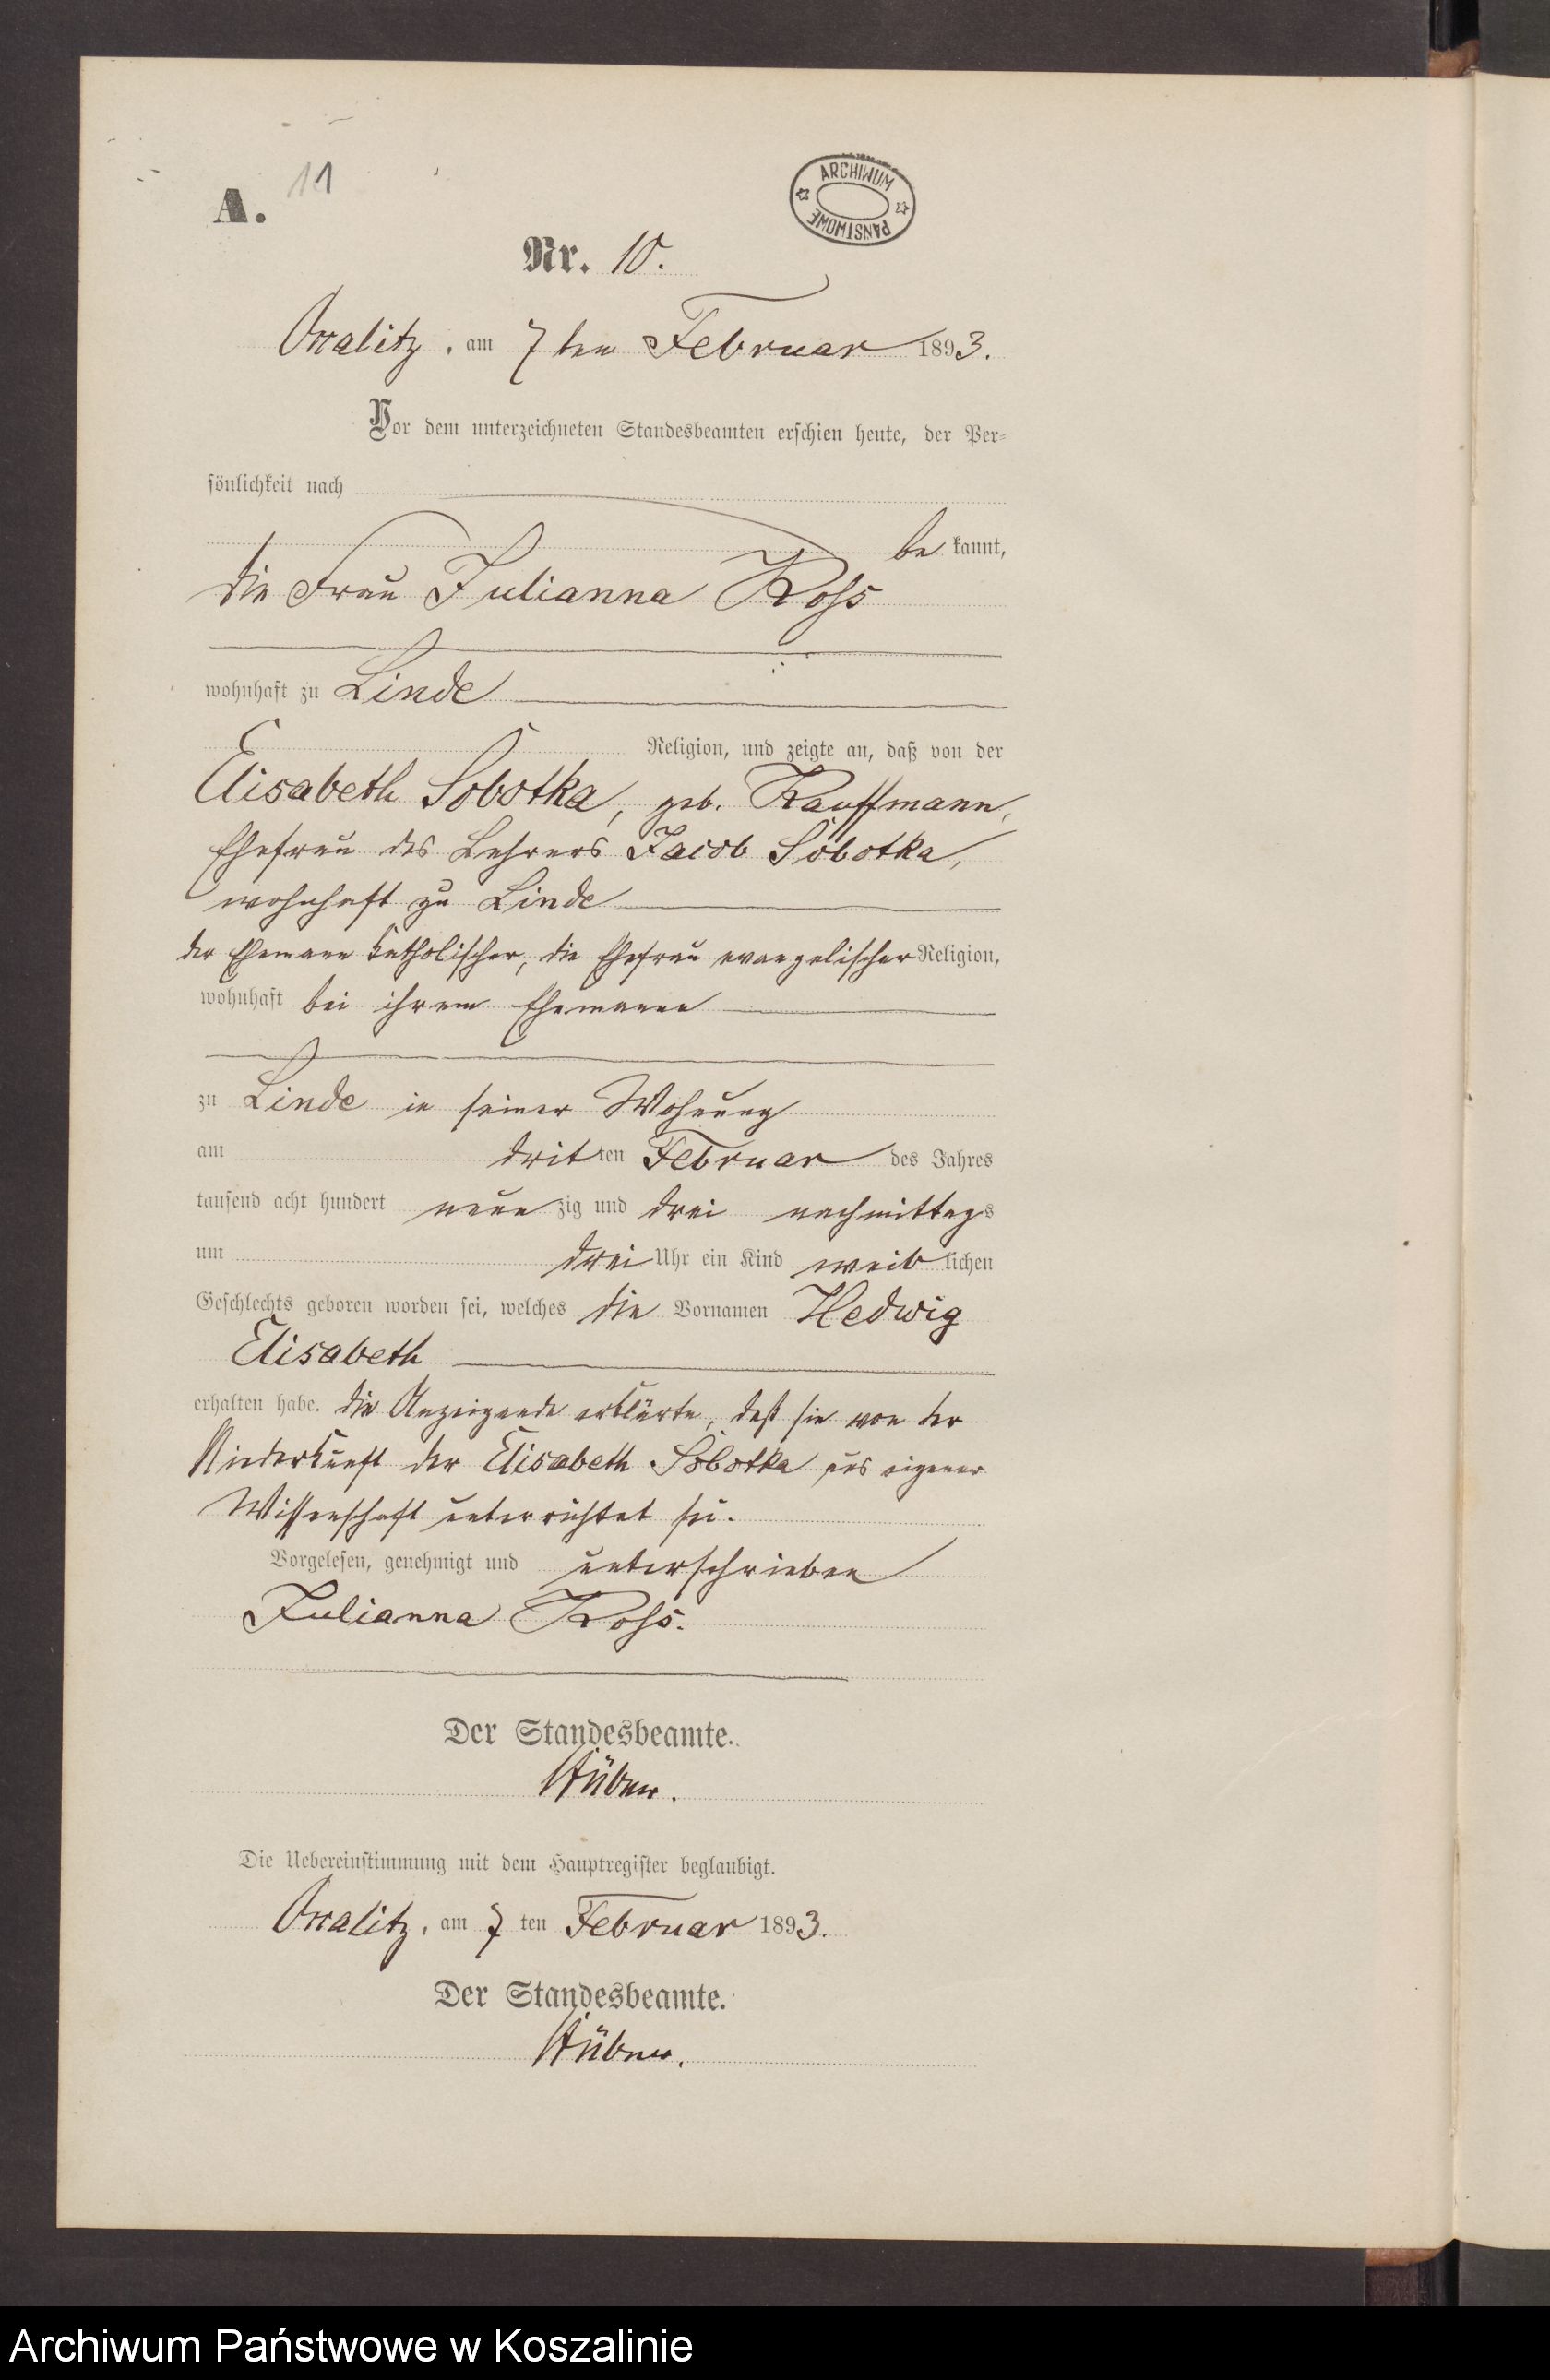 11
A.
ARCHIWUM PAŃSTWOWE
Nr. 10.
Ossalitz, am 7ten Februar 1893.
Vor dem unterzeichneten Standesbeamten erschien heute, der Per-
sönlichkeit nach
be kannt,
die Frau Julianna Ross
wohnhaft zu Linde
Religion, und zeigte an, daß von der
Elisabeth Sobotka, geb. Kauffmann,
Ehefrau des Lehrers Jacob Sobotka,
wohnhaft zu Linde
der Ehemann katholischer, die Ehefrau evangelischer Religion,
wohnhaft bei ihrem Ehemanne
zu Linde in seiner Wohnung
am dritten Februar des Jahres
tausend acht hundert neunzig und drei nachmittags
um drei Uhr ein Kind weiblichen
Geschlechts geboren worden sei, welches die Vornamen Hedwig
Elisabeth
erhalten habe. Die Anzeigende erklärte, daß sie von der
Niederkunft der Elisabeth Sobotka aus eigener
Wissenschaft unterrichtet sei.
Vorgelesen, genehmigt und unterschrieben
Julianna Ross.
Der Standesbeamte.
Hübner.
Die Uebereinstimmung mit dem Hauptregister beglaubigt.
Ossalitz, am 7 ten Februar 1893.
Der Standesbeamte.
Hübner.
Archiwum Państwowe w Koszalinie